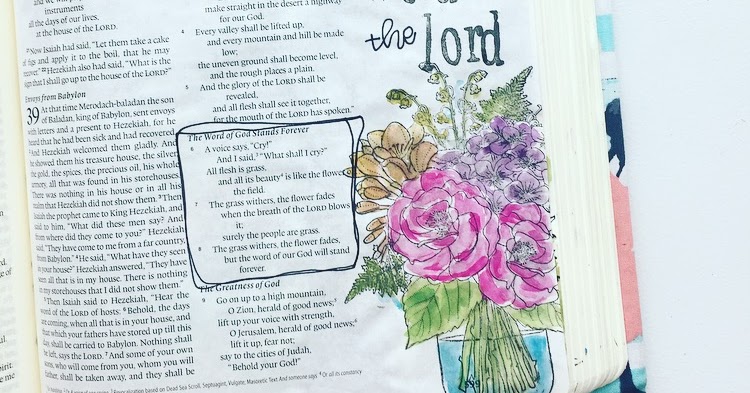 instruments
all the days of our lives,
at the house of the LORD.
21Now Isaiah had said, "Let them take a cake
of figs and apply it to the boil, that he may
recover." 22Hezekiah also had said, "What is the
sign that I shall go up to the house of the LORD?"
Envoys from Babylon
39 At that time Merodach-baladan the son
of Baladan, king of Babylon, sent envoys
with letters and a present to Hezekiah, for he
heard that he had been sick and had recovered.
2And Hezekiah welcomed them gladly. And
he showed them his treasure house, the silver,
the gold, the spices, the precious oil, his whole
armory, all that was found in his storehouses.
There was nothing in his house or in all his
realm that Hezekiah did not show them. 3Then
Isaiah the prophet came to King Hezekiah, and
said to him, "What did these men say? And
from where did they come to you?" Hezekiah
said, "They have come to me from a far country,
from Babylon." 4He said, "What have they seen
in your house?" Hezekiah answered, "They have
seen all that is in my house. There is nothing
in my storehouses that I did not show them."
5Then Isaiah said to Hezekiah, "Hear the
word of the LORD of hosts: 6Behold, the days
are coming, when all that is in your house, and
that which your fathers have stored up till this
day, shall be carried to Babylon. Nothing shall
be left, says the LORD. 7And some of your own
sons, who will come from you, whom you will
father, shall be taken away, and they shall be
make straight in the desert a highway
for our God.
4 Every valley shall be lifted up,
and every mountain and hill be made
low;
the uneven ground shall become level,
and the rough places a plain.
5 And the glory of the LORD shall be
revealed,
and all flesh shall see it together,
for the mouth of the LORD has spoken."
The Word of God Stands Forever
6 A voice says, "Cry!"
And I said, "What shall I cry?"
All flesh is grass,
and all its beauty is like the flower
the field.
7 The grass withers, the flower fades
when the breath of the LORD blows
it;
surely the people are grass.
8 The grass withers, the flower fades,
but the word of our God will stand
forever.
The Greatness of God
9 Go on up to a high mountain,
O Zion, herald of good news;
lift up your voice with strength,
O Jerusalem, herald of good news;
lift it up, fear not;
say to the cities of Judah,
"Behold your God!"
the lord